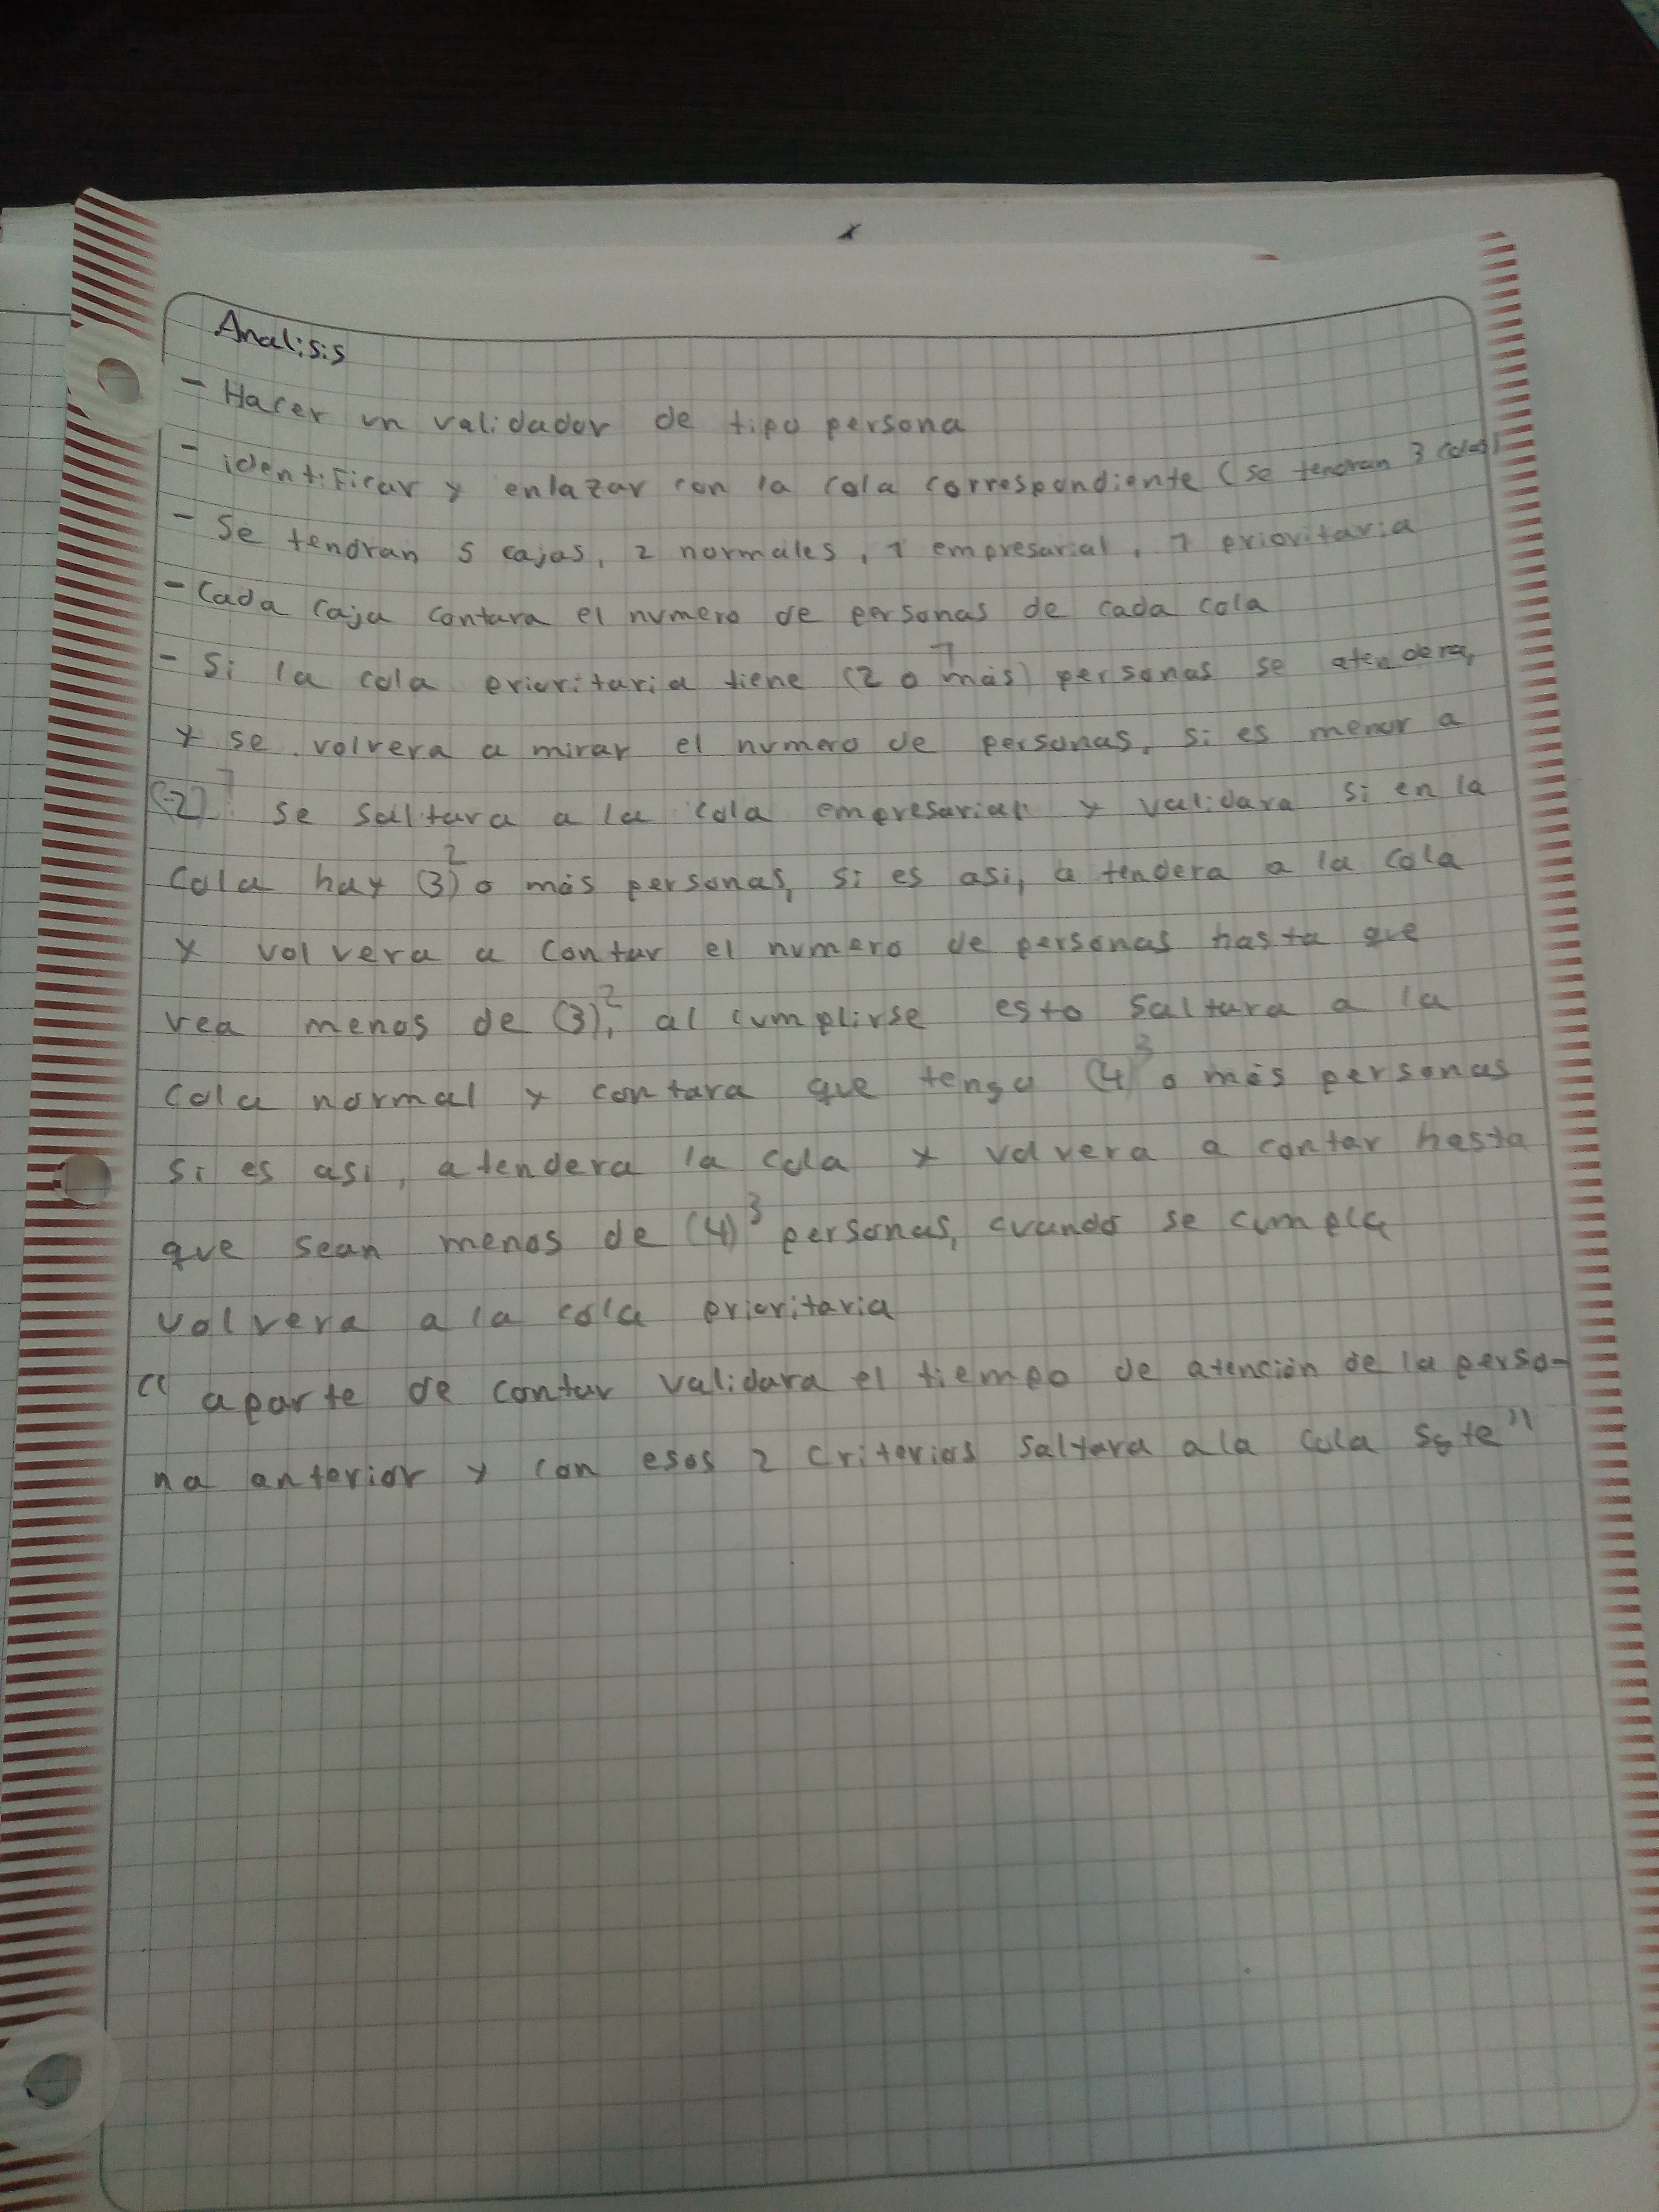 x
Analisis
- Hacer un validador de tipo persona
- identificar y enlazar con la cola correspondiente (se tendran 3 colas)
- Se tendran 5 cajas, 2 normales, 1 empresarial, 1 prioritaria
- Cada caja contara el numero de personas de cada cola
- Si la cola prioritaria tiene (2 o más) 1 personas se atendera,
y se volvera a mirar el numero de personas, si es menor a
(2) 1 se saltara a la cola empresarial y validara si en la
cola hay (3) 2 o más personas, si es asi, atendera a la cola
y volvera a contar el numero de personas hasta que
vea menos de (3) 2, al cumplirse esto saltara a la
cola normal y contara que tenga (4) 3 o más personas
si es asi, atendera la cola y volvera a contar hasta
que sean menos de (4) 3 personas, cuando se cumpla
volvera a la cola prioritaria
"aparte de contar validara el tiempo de atención de la perso-
na anterior y con esos 2 criterios saltara a la cola